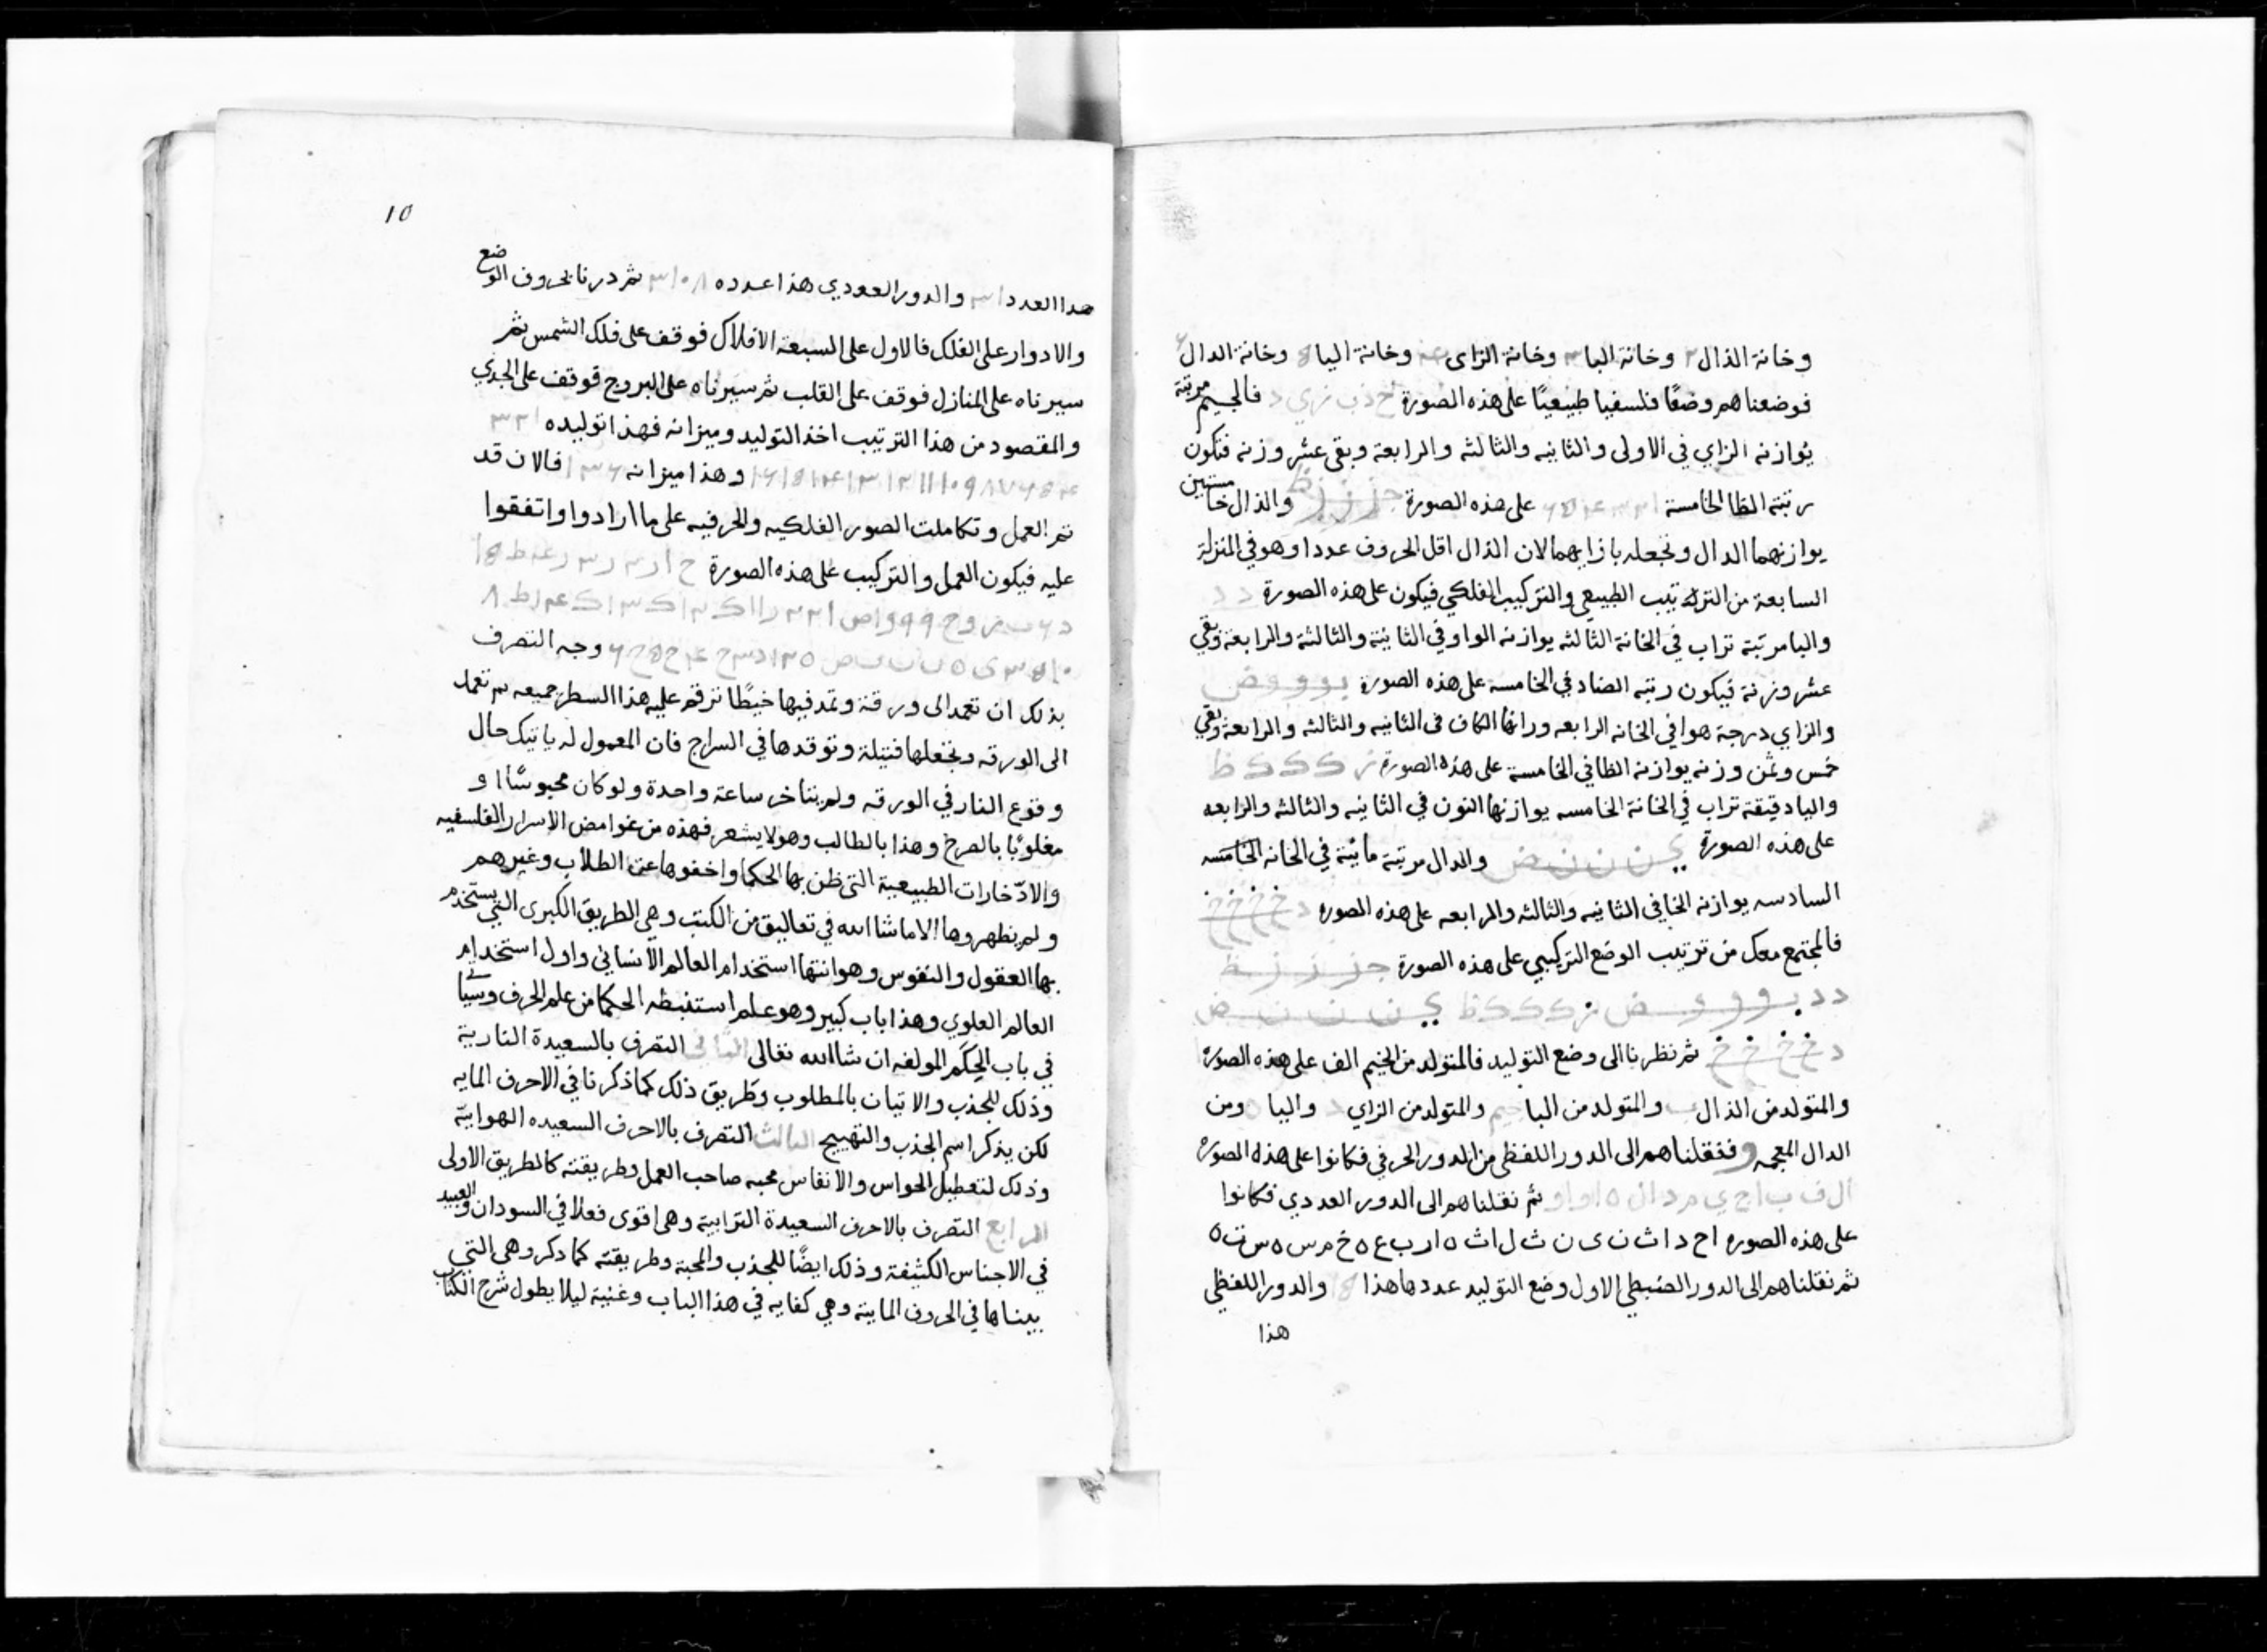 وخانة الذال ٢ وخانة البا ٣ وخانة الزاى وخانة اليا وخانة الدال ٦
فوضعناهم وضعًا فلسفيا طبيعيًا على هذه الصورة ج ذ ب ز ي د فالجيم مرتبة
يُوازنه الزاي في الاولى والثانيه والثالثه والرابعة وبقى عشر وزنه فتكون
رتبته الظا الخامسة على هذه الصورة ج ز ز ز ظ والذال خامستين
يوازنهما الدال ونجعله بازايهما لان الذال اقل الحروف عددا وهو في المنزلة
السابعة من الترتيب الطبيعي والتركيب الفلكي فيكون على هذه الصورة د د
والبا مرتبة تراب في الخانة الثالثه يوازنه الواو في الثانية والثالثة والرابعة وبقي
عشر وزنة فيكون رتبه الضاد في الخامسه على هذه الصورة ب و و و ض
والزاي درجة هوا في الخانه الرابعه وراثها الكاف فى الثانيه والثالثه والرابعة وبقي
خمس وثمن وزنه يوازنه الظا في الخامسة على هذه الصورة ز ك ك ك ظ
واليا دقيقة تراب في الخانة الخامسه يوازنها النون في الثانيه والثالثه والرابعه
على هذه الصورة ي ن ن ن ض والدال مرتبة مائية في الخانه الخامسه
السادسه يوازنه الخا في الثانيه والثالثه والرابعه على هذه الصوره د خ خ خ خ
فالمجتمع معك من ترتيب الوضع التركيبي على هذه الصورة ج ز ز ز ظ
د د ب و و و ض ز ك ك ك ظ ي ن ن ن ض
د خ خ خ خ ثم نظرنا الى وضع التوليد فالمتولد من الجيم الف على هذه الصورة
والمتولد من الذال ب والمتولد من البا جيم والمتولد من الزاي د واليا ه ومن
الدال المعجمه و فنقلناهم الى الدور اللفظي من الدور الحرفي فكانوا على هذه الصورة
ال ف ب ا ج ي م د ا ل ه ا و ا و ثم نقلناهم الى الدور العددي فكانوا
على هذه الصوره ا ح د ا ث ن ى ن ث ل ا ث ه ا ر ب ع ه خ م س ه س ت ه
ثم نقلناهم الى الدور الضبطي الاول وضع التوليد عددها هذا والدور اللفظي
هذا
١٥
هذا العدد والدور العددي هذا عدده ٣١٠٨ ثم درنا بحروف الوضع
والادوار على الفلك فالاول على السبعة الافلاك فوقف على فلك الشمس ثم
سيرناه على المنازل فوقف على القلب ثم سيرناه على البروج فوقف على الجدي
والمقصود من هذا الترتيب اخذ التوليد وميزانه فهذا توليده ١ ٢ ٣
وهذا ميزانه فالان قد
تم العمل وتكاملت الصور الفلكيه والحرفيه على ما ارادوا واتفقوا
عليه فيكون العمل والتركيب على هذه الصورة
وجه التصرف
بذلك ان تعمد الى ورقة وتمد فيها خيطًا ترقم عليه هذا السطر جميعه ثم تعمد
الى الورقه وتجعلها فتيلة وتوقدها في السراج فان المعمول له ياتيك حال
وقوع النار في الورقه ولم يتاخر ساعة واحدة ولو كان محبوسًا او
مغلوبًا بالصرع وهذا بالطالب وهو لا يشعر فهذه من غوامض الاسرار الفلسفيه
والادّخارات الطبيعية التى ظن بها الحكما واخفوها عن الطلاب وغيرهم
ولم يظهروها الا ما شا الله في تعاليق من الكتب وهي الطريق الكبرى التي يستخدم
بها العقول والنفوس وهو انتها استخدام العالم الانساني واول استخدام
العالم العلوي وهذا باب كبير وهو علم استنبطه الحكما من علم الحرف وسياتى
في باب الحِكَم المولفه ان شا الله تعالى الثاني التصرف بالسعيدة النارية
وذلك للجذب والاتيان بالمطلوب وطريق ذلك كما ذكرنا في الاحرف المايه
لكن يذكر اسم الجذب والتهييج الثالث التصرف بالاحرف السعيده الهوايية
وذلك لتعطيل الحواس والانفاس محبه صاحب العمل وطريقته كالطريق الاولى
الرابع التصرف بالاحرف السعيدة الترابية وهى اقوى فعلا في السودان والعبيد
في الاجناس الكثيفة وذلك ايضًا للجذب والمحبة وطريقته كما ذكر وهى التي
بيناها في الحروف الماية وهي كفايه في هذا الباب وغنية ليلا يطول شرح الكتاب